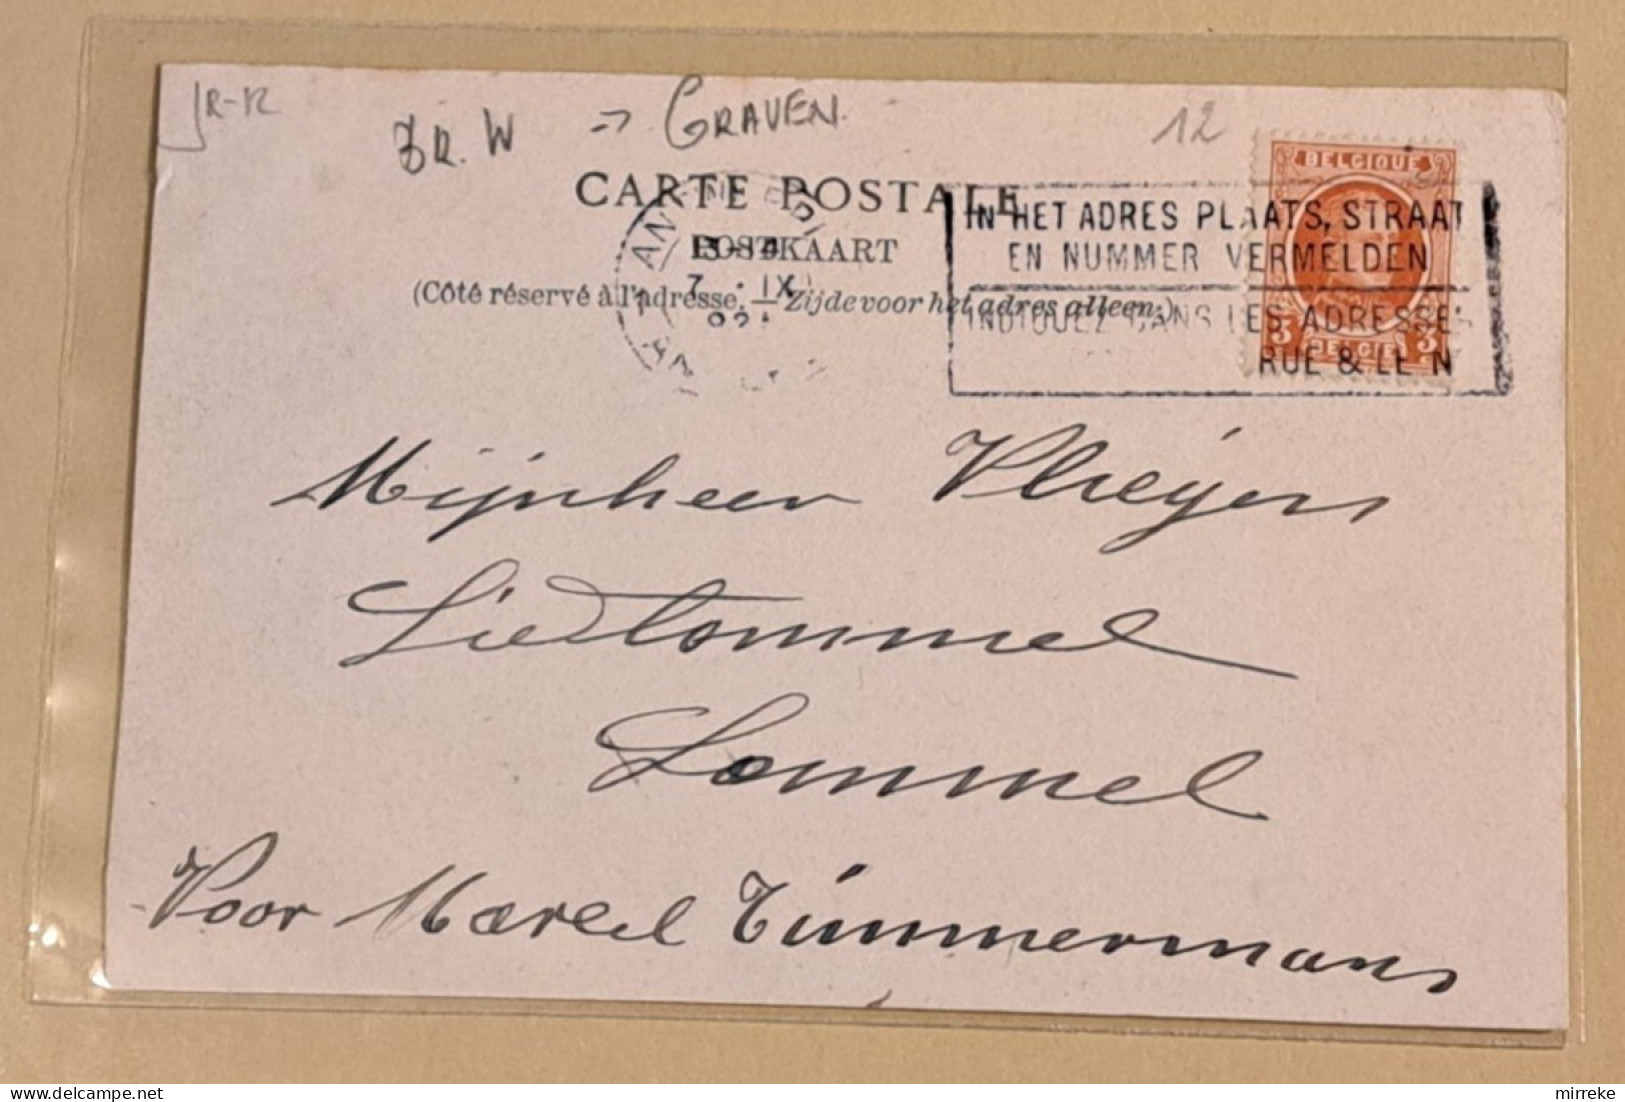 JR-R
BR. W → GRAVEN.
12
CARTE POSTALE
POSTKAART
(Côté réservé à l'adresse. — Zijde voor het adres alleen.)
13-14
7 · IX
IN HET ADRES PLAATS, STRAAT
EN NUMMER VERMELDEN
INDIQUEZ DANS LES ADRESSES
RUE & LE N
BELGIQUE
3 BELGIË 3
Mijnheer Vleijers
Lommel
Voor Marcel Timmermans
mirreke